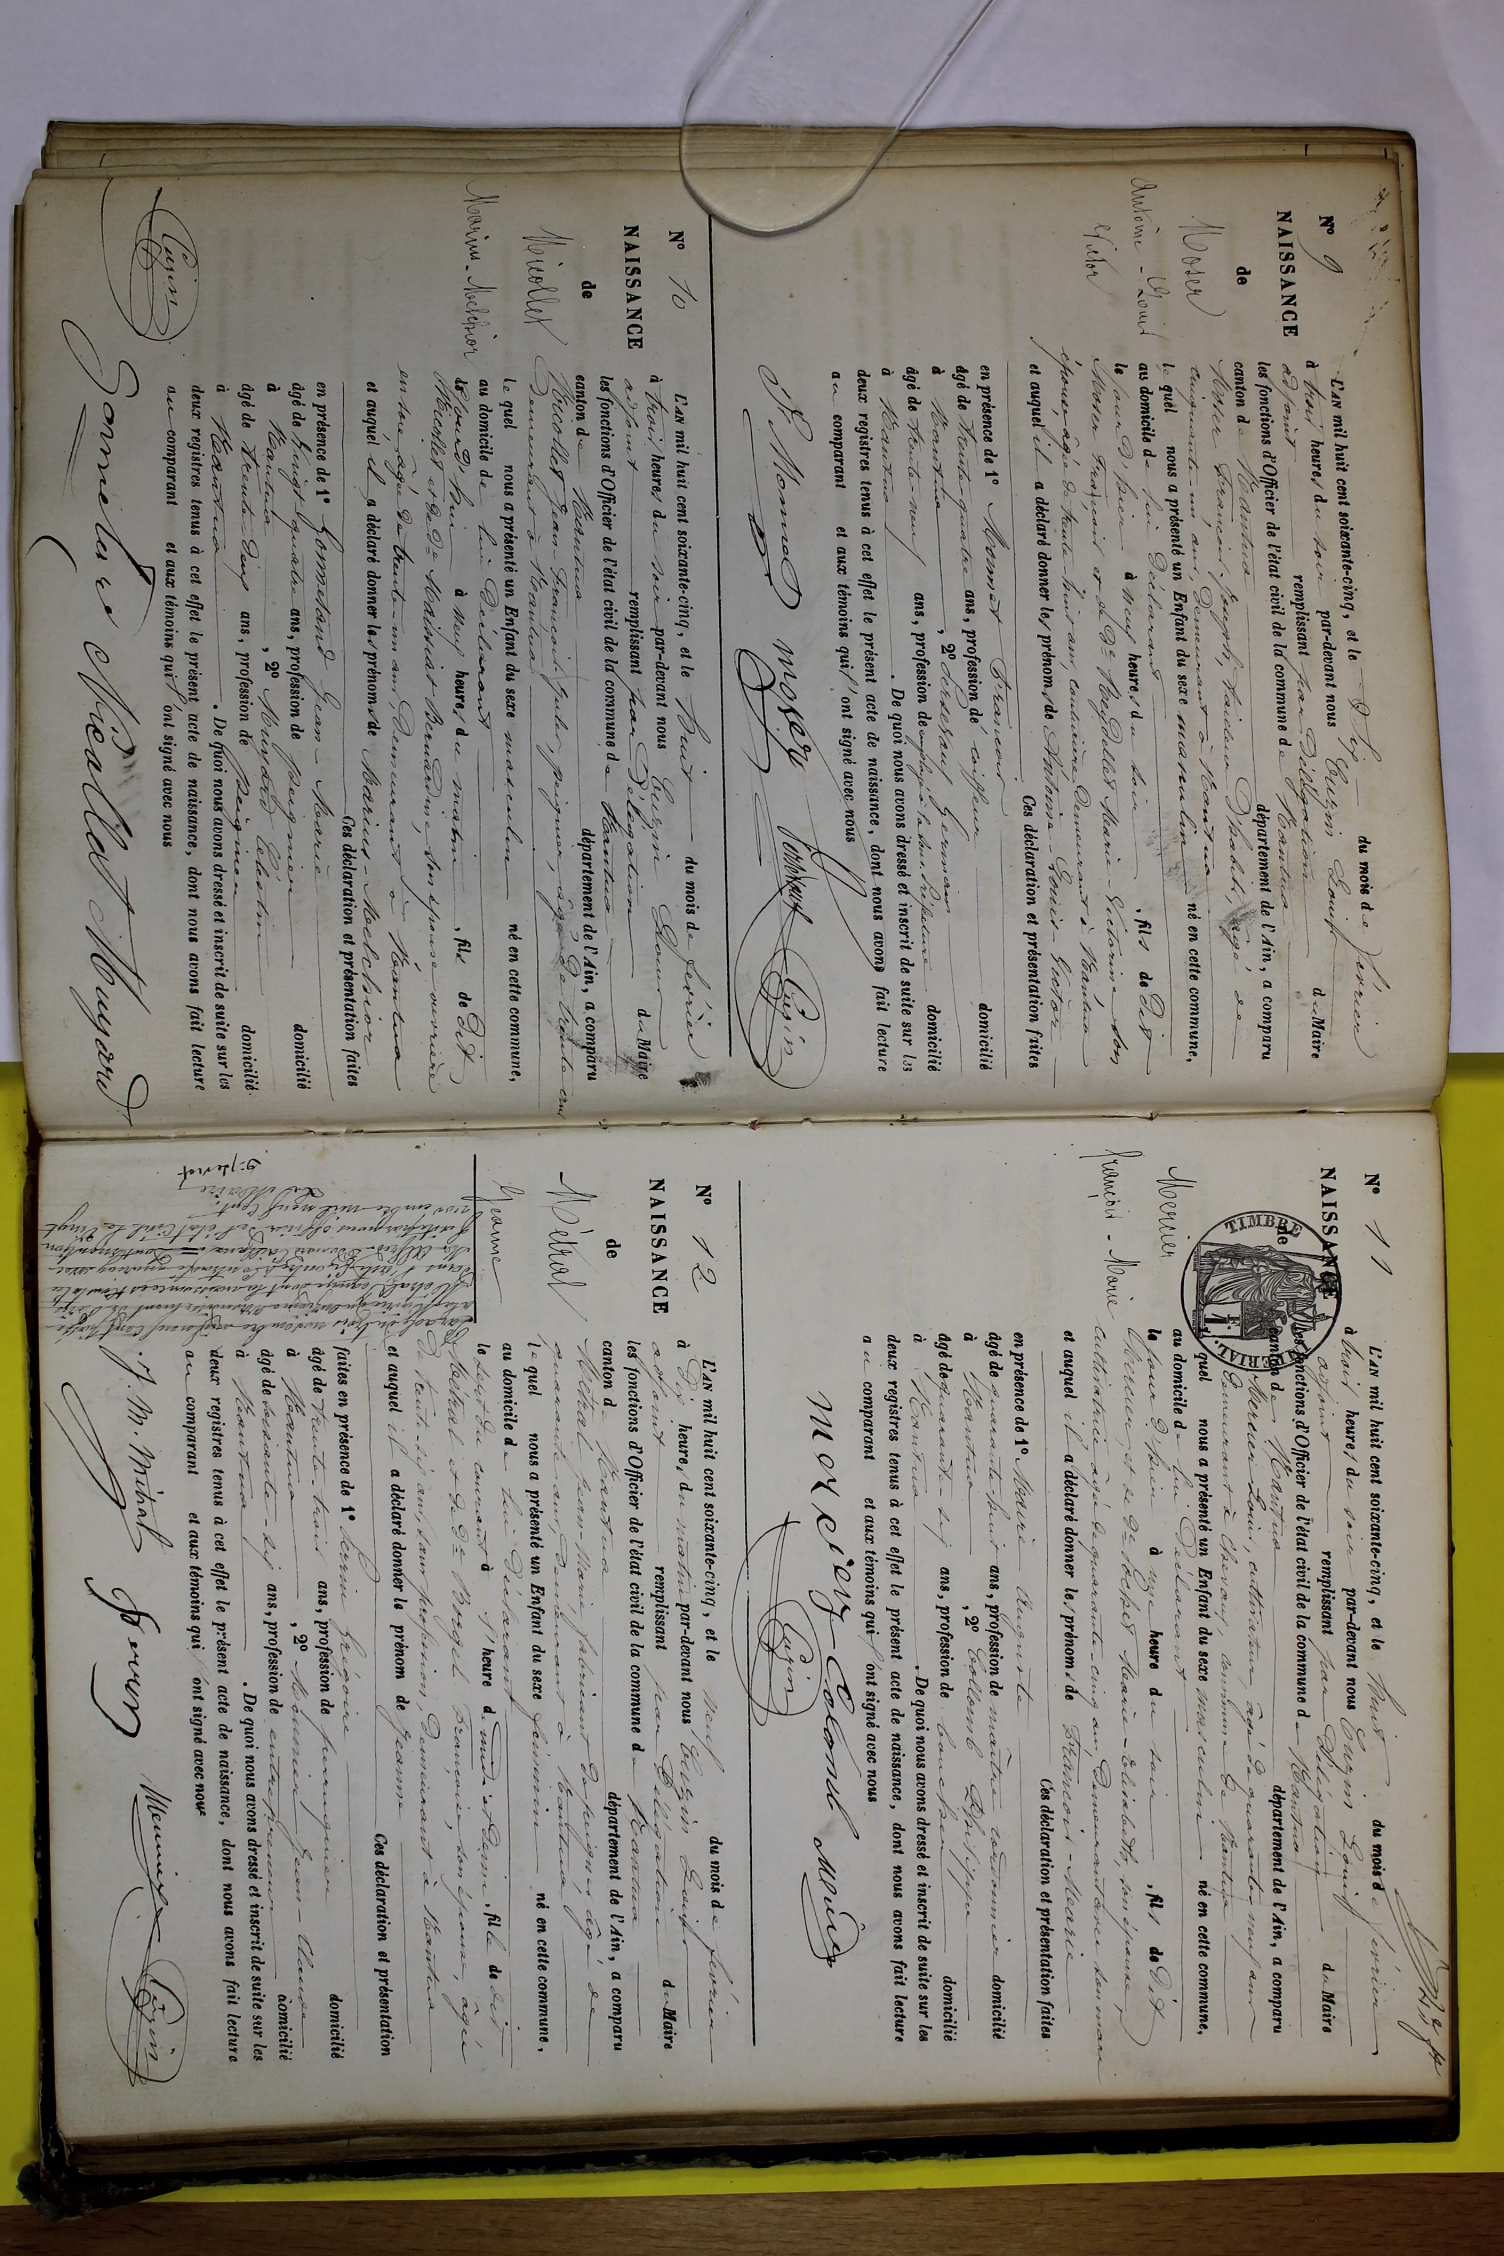 N° 9
NAISSANCE
de
Moser
Antoine - Louis
Victor
L'AN mil huit cent soixante-cinq, et le Six du mois de février
à trois heures du soir par-devant nous Cugin Louis
adjoint remplissant par Délégation du Maire
les fonctions d'Officier de l'état civil de la commune de Nantua
canton de Nantua département de l'Ain, a comparu
Moser François Joseph, tailleur d'habits, âgé de
cinquante-un ans, Demeurant à Nantua
lequel nous a présenté un Enfant du sexe masculin né en cette commune,
au domicile de lui Déclarant
le jour d'hier à neuf heures du soir, fils de Dit
Moser François et de De Reydellet Marie-Victorine son
épouse, âgée de trente-huit ans, couturière, Demeurant à Nantua
et auquel il a déclaré donner les prénoms de Antoine-Louis-Victor
Ces déclaration et présentation faites
en présence de 1° Monnet François
âgé de trente-quatre ans, profession de coiffeur domicilié
à Nantua, 2° Germain
âgé de trente-neuf ans, profession de employé à la Sous-Préfecture domicilié
à Nantua. De quoi nous avons dressé et inscrit de suite sur les
deux registres tenus à cet effet le présent acte de naissance, dont nous avons fait lecture
au comparant et aux témoins qui ont signé avec nous
F. Monnet moser Cugin
N° 10
NAISSANCE
de
Nicollet
Marius-Melchior
L'AN mil huit cent soixante-cinq, et le huit du mois de février
à trois heures du soir par-devant nous Cugin Louis
adjoint remplissant par Délégation du Maire
les fonctions d'Officier de l'état civil de la commune de Nantua
canton de Nantua département de l'Ain, a comparu
Nicollet Jean François Jules, peignier, âgé de trente ans
Demeurant à Nantua
lequel nous a présenté un Enfant du sexe masculin né en cette commune,
au domicile de lui Déclarant
le jour d'hui à neuf heures du matin, fils de Dit
Nicollet et de De Maissiat Bernardine, son épouse ouvrière
en soie, âgée de trente-un ans, Demeurant à Nantua
et auquel il a déclaré donner les prénoms de Marius-Melchior
Ces déclaration et présentation faites
en présence de 1° Gommeland Jean-Marie
âgé de vingt-quatre ans, profession de peignier domicilié
à Nantua, 2° Muyard Célestin
âgé de trente-deux ans, profession de peignier domicilié
à Nantua. De quoi nous avons dressé et inscrit de suite sur les
deux registres tenus à cet effet le présent acte de naissance, dont nous avons fait lecture
au comparant et aux témoins qui ont signé avec nous
Nicollat Muyard
Cugin
N° 11
NAISSANCE
de
Mercier
François-Marie
TIMBRE IMPERIAL
L'AN mil huit cent soixante-cinq, et le huit du mois de février
à trois heures du soir par-devant nous Cugin Louis
adjoint remplissant par Délégation du Maire
les fonctions d'Officier de l'état civil de la commune de Nantua
canton de Nantua département de l'Ain, a comparu
Mercier Louis, cultivateur, âgé de quarante-neuf ans
Demeurant à Chevoux, commune de Nantua
lequel nous a présenté un Enfant du sexe masculin né en cette commune,
au domicile de lui Déclarant
le jour d'hier à onze heure du soir, fils de Dit
Mercier et de De Rochet Marie-Elisabeth, son épouse,
cultivatrice, âgée de quarante-cinq ans, Demeurant avec son mari
et auquel il a déclaré donner les prénoms de François-Marie
Ces déclaration et présentation faites
en présence de 1° Mairie Auguste
âgé de quarante-huit ans, profession de maître cordonnier domicilié
à Nantua, 2° Collomb Philippe
âgé de quarante-six ans, profession de domicilié
à Nantua. De quoi nous avons dressé et inscrit de suite sur les
deux registres tenus à cet effet le présent acte de naissance, dont nous avons fait lecture
au comparant et aux témoins qui ont signé avec nous
Mercier Colomb Mairie
Cugin
N° 12
NAISSANCE
de
Métral
Jeanne
L'AN mil huit cent soixante-cinq, et le neuf du mois de février
à Dix heures du matin par-devant nous Cugin Louis
adjoint remplissant par Délégation du Maire
les fonctions d'Officier de l'état civil de la commune de Nantua
canton de Nantua département de l'Ain, a comparu
Métral Jean-Marie, fabricant de peignes, âgé de
quarante ans, Demeurant à Nantua
lequel nous a présenté un Enfant du sexe féminin né en cette commune,
au domicile de lui Déclarant
le sept du courant à heure de midi et demi, fille de dit
Métral et de De Borget Françoise, son épouse, âgée
de trente-six ans, sans profession, Demeurant à Nantua
et auquel il a déclaré donner le prénom de Jeanne
Ces déclaration et présentation
faites en présence de 1° Perrin Grégoire
âgé de trente-trois ans, profession de perruquier domicilié
à Nantua, 2° Jean-Claude
âgé de soixante-six ans, profession de entrepreneur domicilié
à Nantua. De quoi nous avons dressé et inscrit de suite sur les
deux registres tenus à cet effet le présent acte de naissance, dont nous avons fait lecture
au comparant et aux témoins qui ont signé avec nous
J. M. Métral Perrin Cugin